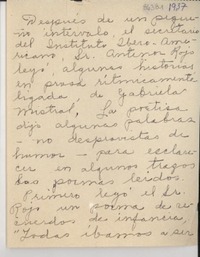 1937
Después de un peque-
ño intervalo, el secretario
del Instituto Ibero-Ame-
ricano, Sr. Antonio Rojo
leyó algunas historias
en prosa rítmicamente
ligada de Gabriela
Mistral. La poetisa
dijo algunas palabras
- no desprovistas de
humor - para esclare-
cer en algunos trazos
los poemas leídos.
Primero leyó el Sr.
Rojo un poema de re-
cuerdos de infancia,
"Todas íbamos a ser